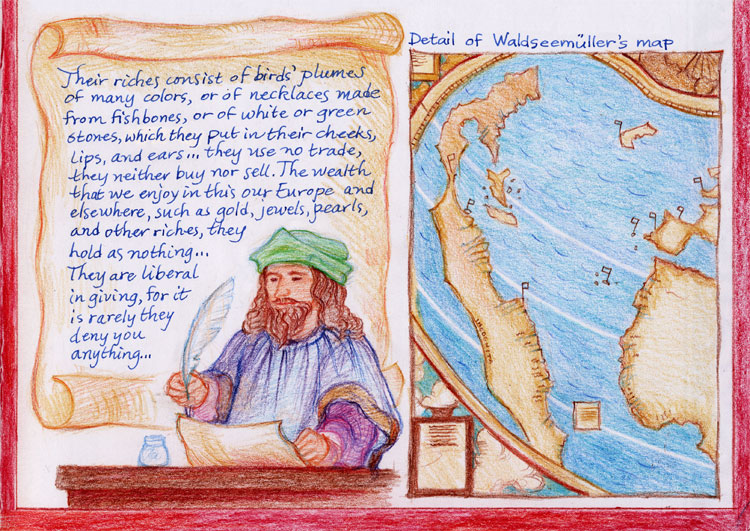 Detail of Waldseemüller's map
Their riches consist of birds' plumes
of many colors, or of necklaces made
from fishbones, or of white or green
stones, which they put in their cheeks,
lips, and ears... they use no trade,
they neither buy nor sell. The wealth
that we enjoy in this our Europe and
elsewhere, such as gold, jewels, pearls,
and other riches, they
hold as nothing...
They are liberal
in giving, for it
is rarely they
deny you
anything...